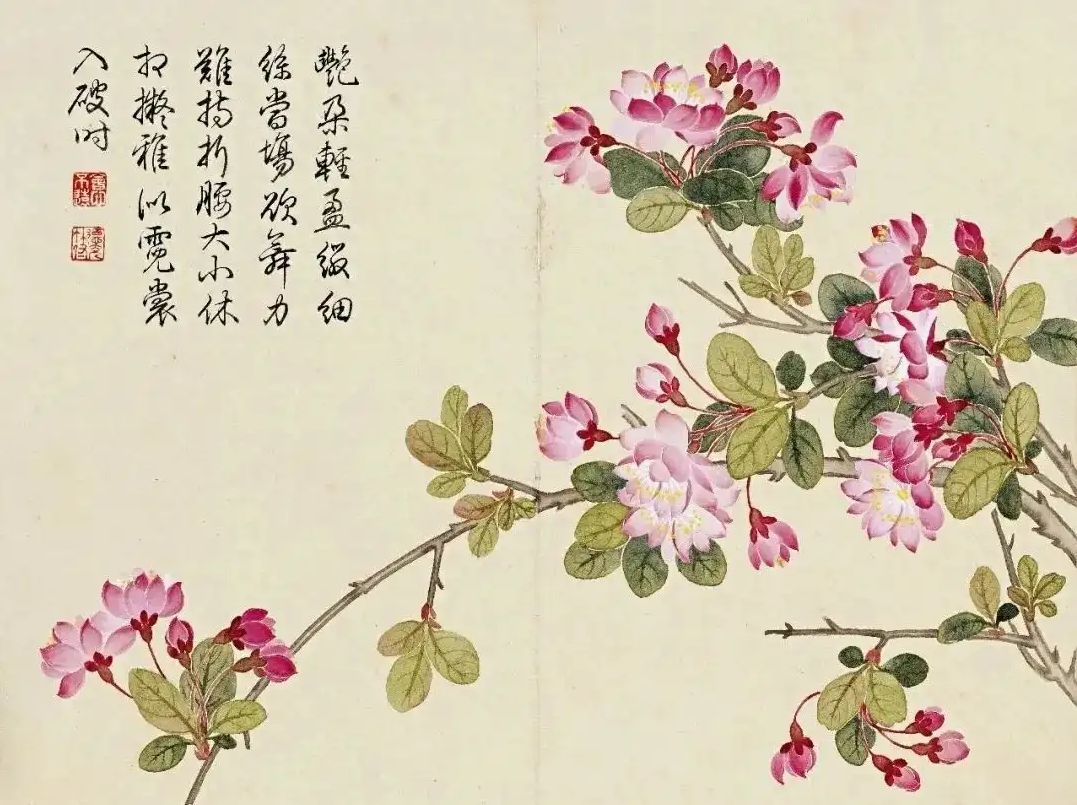 艷朵輕盈綴細
絲當場欲舞力
難持折腰大小休
相擬雅似霓裳
入破時
會心不遠